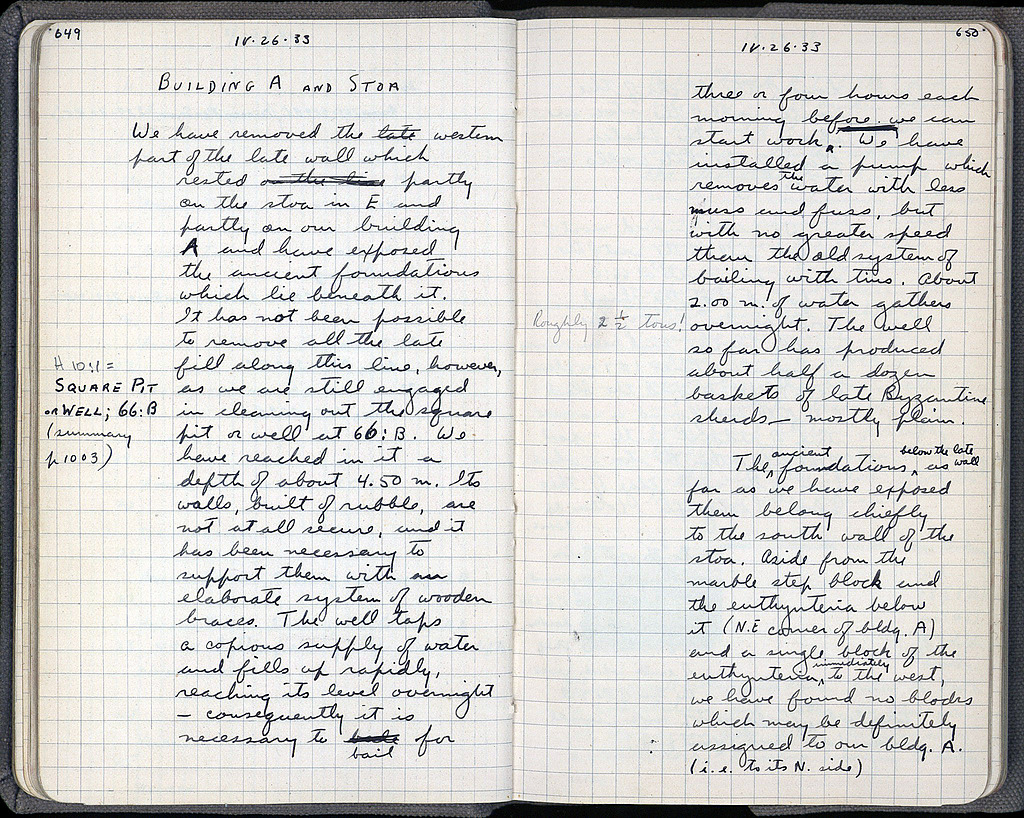 649
IV·26·33
BUILDING A AND STOA
We have removed the late western
part of the late wall which
rested on the line partly
on the stoa in E and
partly on our building
A and have exposed
the ancient foundations
which lie beneath it.
It has not been possible
to remove all the late
fill along this line, however,
as we are still engaged
in cleaning out the square
pit or well at 66:B. We
have reached in it a
depth of about 4.50 m. Its
walls, built of rubble, are
not at all secure, and it
has been necessary to
support them with an
elaborate system of wooden
braces. The well taps
a copious supply of water
and fills up rapidly,
reaching its level overnight
– consequently it is
necessary to bale for
bail
H 10:1 =
SQUARE PIT
OR WELL; 66:B
(summary
p 1003)
650
IV·26·33
three or four hours each
morning before we can
start work. We have
installed a pump which
removes the water with less
muss and fuss, but
with no greater speed
than the old system of
bailing with tins. About
2.00 m. of water gathers
overnight. The well
so far has produced
about half a dozen
baskets of late Byzantine
sherds – mostly plain.
Roughly 2 ½ tons!
The ancient foundations below the late wall, as
far as we have exposed
them belong chiefly
to the south wall of the
stoa. Aside from the
marble step block and
the euthynteria below
it (N.E corner of bldg. A)
and a single block of the
euthynteria immediately to the west,
we have found no blocks
which may be definitely
assigned to our bldg. A.
(i.e. to its N. side)